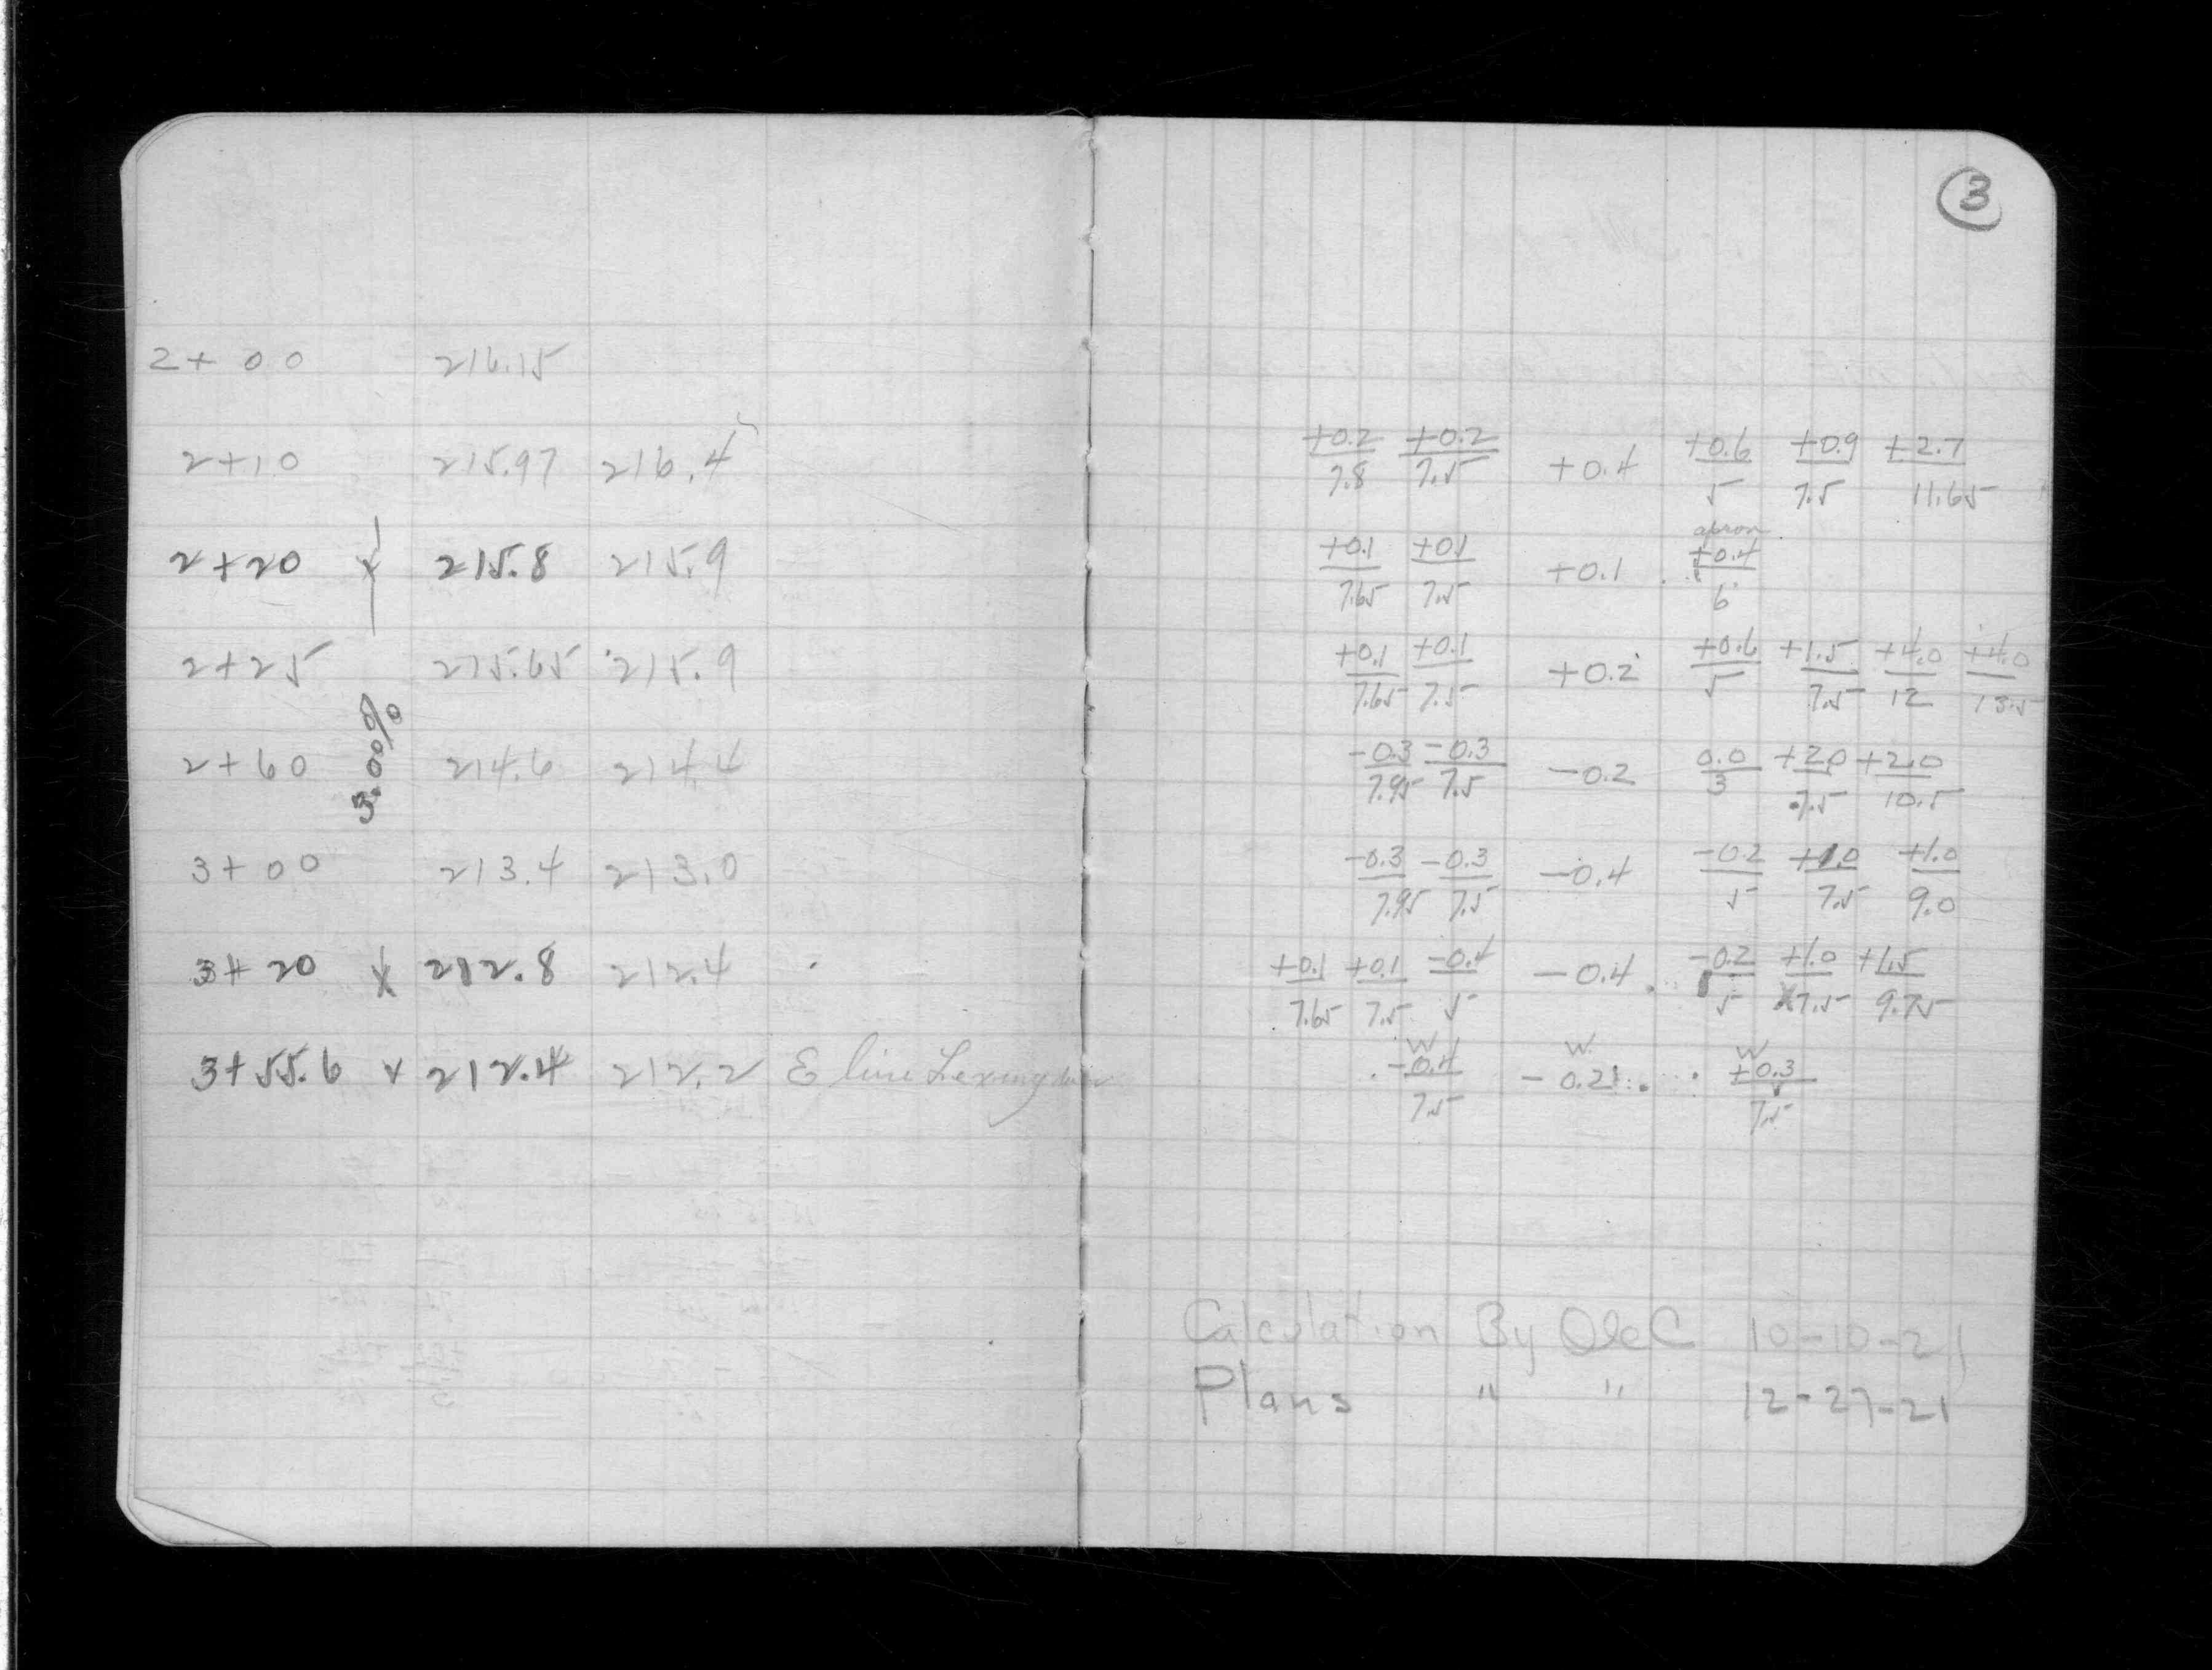 3
2+00 216.15
2+10 215.97 216.4 +0.2/7.8 +0.2/7.5 +0.4 +0.6/5 +0.9/7.5 +2.7/11.65
apron
2+20 x 215.8 215.9 +0.1/7.65 +0.1/7.5 +0.1 +0.4/6
2+25 215.65 215.9 +0.1/7.65 +0.1/7.5 +0.2 +0.6/5 +1.5/7.5 +4.0/12 +4.0/13.5
3.00%
2+60 214.6 214.4 -0.3/7.95 -0.3/7.5 -0.2 0.0/3 +2.0/7.5 +2.0/10.5
3+00 213.4 213.0 -0.3/7.95 -0.3/7.5 -0.4 -0.2/5 +1.0/7.5 +1.0/9.0
3+20 x 212.8 212.4 +0.1/7.65 +0.1/7.5 -0.4/5 -0.4 -0.2/5 +1.0/7.5 +1.5/9.75
W W W
3+55.6 x 212.4 212.2 E line Lexington -0.4/7.5 -0.2 +0.3/7.5
Calculation By 10-10-21
Plans " " 12-27-21